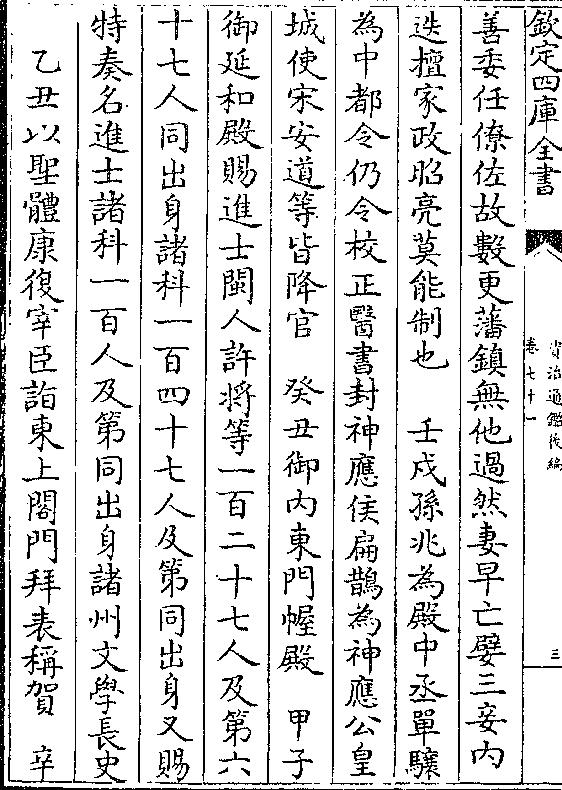 欽定四庫全書
資治通鑑後編
卷七十一
三
善委任僚佐故數更藩鎮無他過然妻早亡嬖三妾内
迭擅家政昭亮莫能制也　壬戍孫兆為殿中丞單驤
為中都令仍令校正醫書封神應侯扁鵲為神應公皇
城使宋安道等皆降官　癸丑御内東門幄殿　甲子
御延和殿賜進士閩人許將等一百二十七人及第六
十七人同出身諸科一百四十七人及第同出身又賜
特奏名進士諸科一百人及第同出身諸州文學長史
乙丑以聖體康復宰臣詣東上閤門拜表稱賀　辛